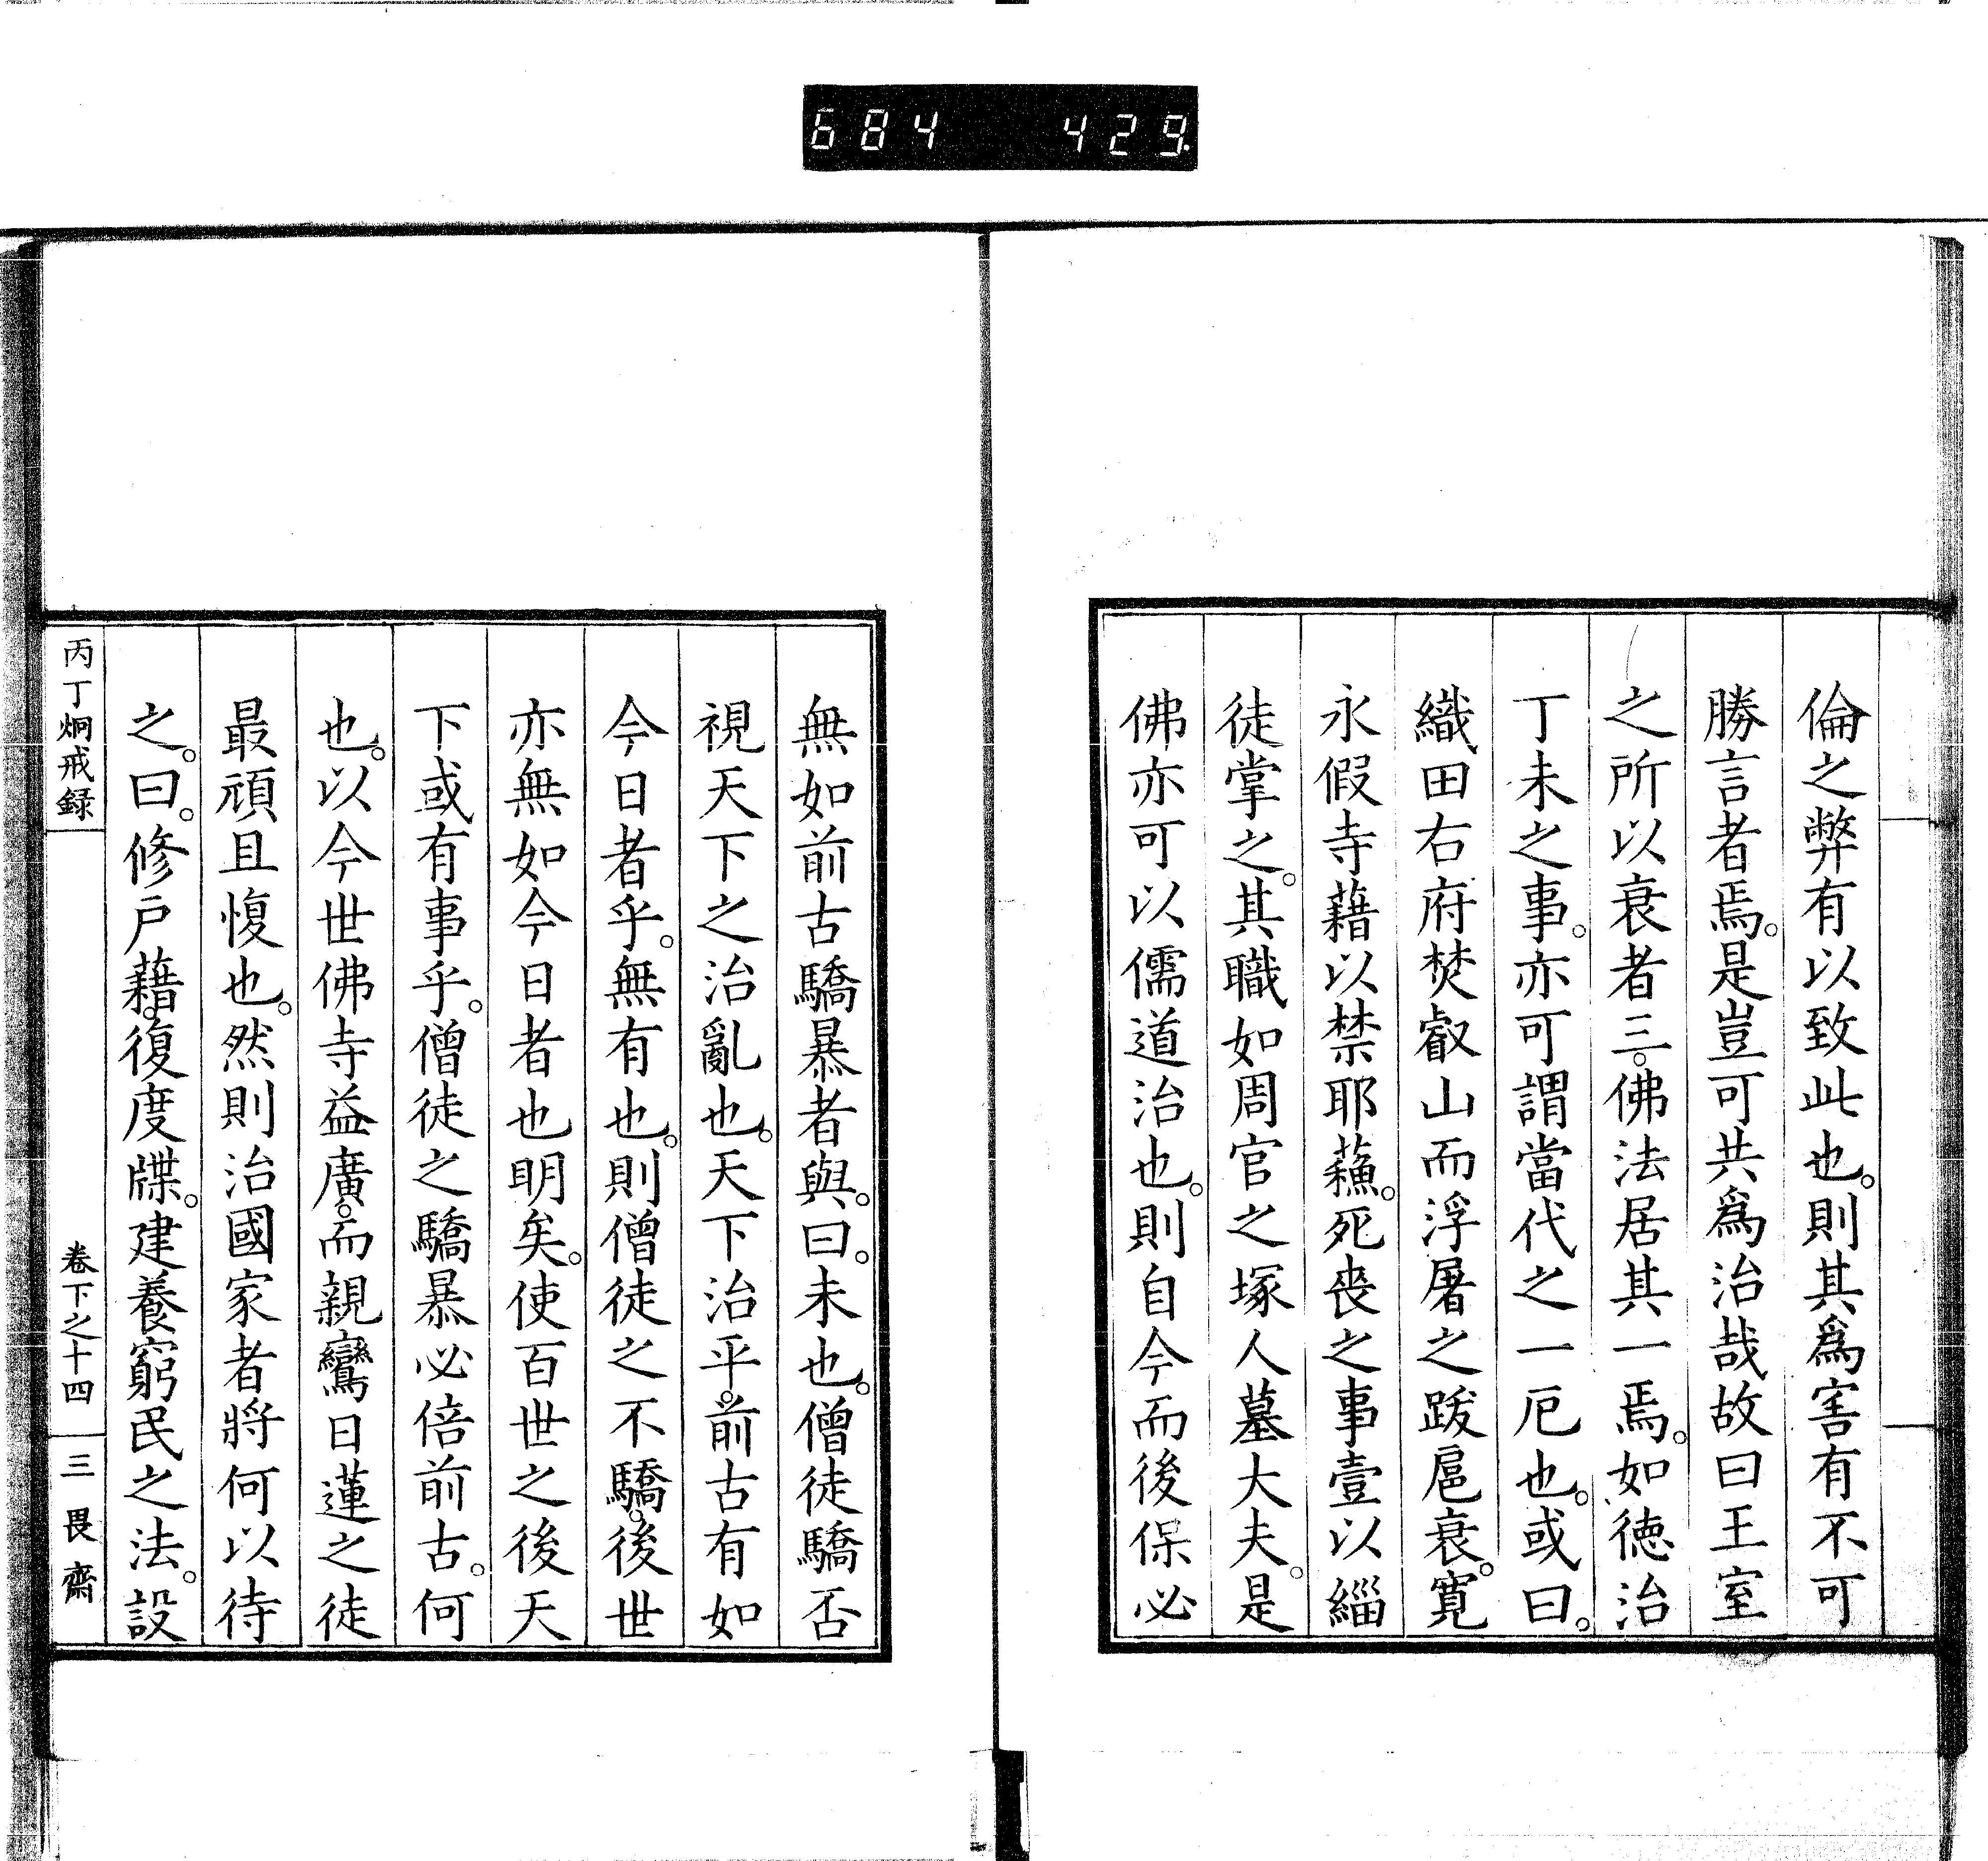 684 429
倫之弊有以致此也。則其爲害有不可
勝言者焉。是豈可共爲治哉故曰王室
之所以衰者三。佛法居其一焉。如徳治
丁未之事。亦可謂當代之一厄也。或曰。
織田右府焚叡山而浮屠之跋扈衰。寛
永假寺藉以禁耶蘓。死喪之事壹以緇
徒掌之。其職如周官之塚人墓大夫。是
佛亦可以儒道治也。則自今而後保必
無如前古驕暴者與。曰。未也。僧徒驕否
視天下之治亂也。天下治平。前古有如
今日者乎。無有也。則僧徒之不驕。後世
亦無如今日者也明矣。使百世之後天
下或有事乎。僧徒之驕暴必倍前古。何
也。以今世佛寺益廣。而親鸞日蓮之徒
最頑且愎也。然則治國家者將何以待
之。曰。修戸藉。復度牒。建養窮民之法。設
丙丁烱戒録
卷下之十四
三畏齋